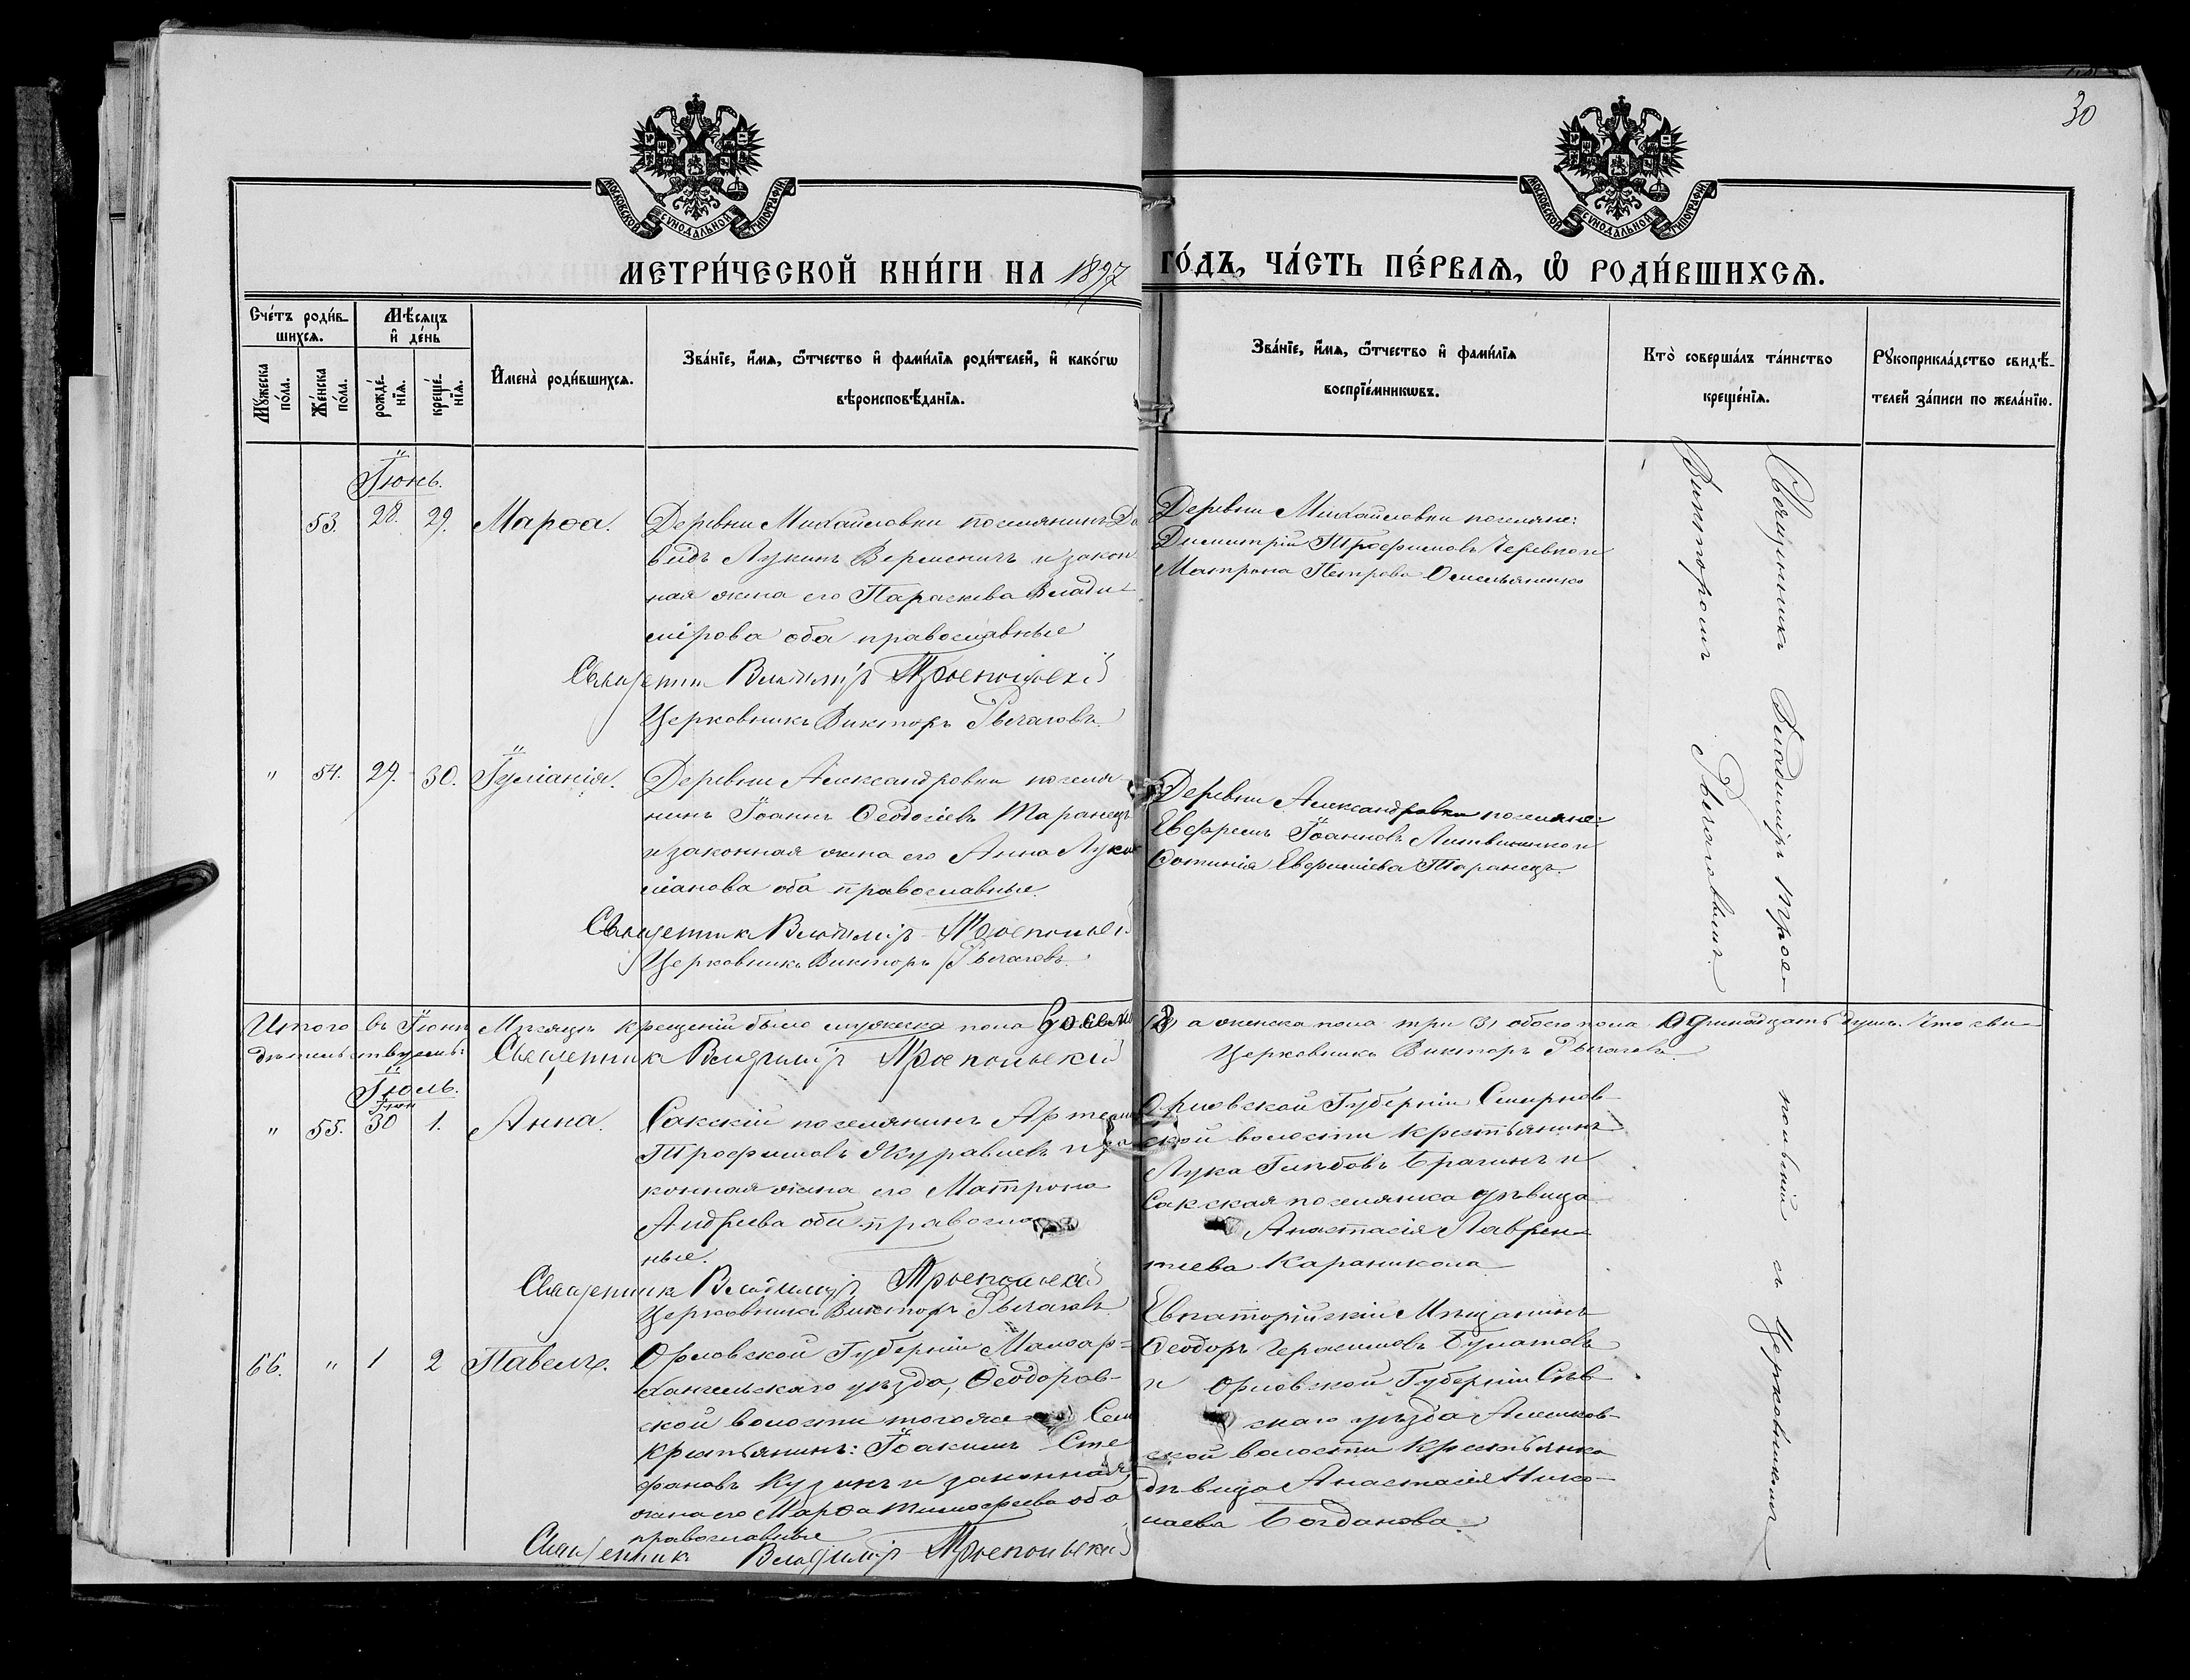 30
МОСКОВСКОЙ СѴНОДАЛЬНОЙ ТИПОГРАФІИ
МОСКОВСКОЙ СѴНОДАЛЬНОЙ ТИПОГРАФІИ
МЕТРИ́ЧЕСКОЙ КНИ́ГИ НА 1897 ГО́ДЪ, ЧА́СТЬ ПЕ́РВАЯ, Ѽ РОДИ́ВШИХСЯ.
Сче́тъ роди́в-
шихсѧ.
Мѣ́сѧцъ
и҆ де́нь
Мꙋ́жеска
по́ла.
Же́нска
по́ла.
рожде́-
нїѧ.
креще́-
нїѧ.
И҆мена̀ роди́вшихсѧ.
Зва́нїе, и҆́мѧ, ѻ҆́тчество и҆ фами́лїѧ роди́телей, и҆ како́гѡ
вѣроисповѣ́данїѧ.
Зва́нїе, и҆́мѧ, ѻ҆́тчество и҆ фами́лїѧ
воспрїе́мникѡвъ.
Кто̀ соверша́лъ та́инство
креще́нїѧ.
Рꙋкоприкла́дство свидѣ́-
телей за́писи по жела́нїю.
Іюнь.
53. 28. 29. Марѳа.
Деревни Михайловки поселянинъ Да
видъ Лукинъ Верменичъ и закон
ная жена его Параскева Влади-
мірова оба православные
Священникъ Владиміръ Трепольскій
Церковникъ Викторъ Рычаговъ
Деревни Михайловки поселяне:
Димитрій Трофимовъ Черевко и
Матрона Петрова Омельяненко
" 54. 29. 30. Іуліанія.
Деревни Александровки поселя-
нинъ Іоаннъ Ѳеодосіевъ Таранецъ
и законная жена его Анна Луки
лианова оба православные
Священникъ Владиміръ Трепольскій
Церковникъ Викторъ Рычаговъ
Деревни Александровки поселяне:
Евфремъ Іоанновъ Литвиненко и
Фотинія Евфиміева Таранецъ.
Итого въ Іюнѣ Мѣсяцѣ крещеній было мужеска пола восемь (8) а женска пола три (3) обоего пола одиннадцать душъ. Что сви-
дѣтельствуемъ: Священникъ Владиміръ Трепольскій Церковникъ Викторъ Рычаговъ
Іюль.
Іюн
" 55. 30 1. Анна.
Сакскій поселянинъ Артемій
Трофимовъ Журавлевъ и за
конная жена его Матрона
Андреева оба православ
ные.
Священникъ Владиміръ Трепольскій
Церковникъ Викторъ Рычаговъ
Орловской Губерніи Смирнов-
ской волости крестьянинъ
Лука Глѣбовъ Брагинъ и
Сакская поселянка дѣвица
Анастасія Лаврен-
тіева Караникола
66. " 1 2 Павелъ.
Орловской Губерніи Малоар-
хангельскаго уѣзда, Ѳеодоров-
ской волости тогоже Села
крестьянинъ: Іоакимъ Сте
фановъ Кузинъ и законная
жена его Марѳа Тимофеева оба
православные
Священникъ Владиміръ Трепольскій
Евпаторійскій Мѣщанинъ
Ѳеодоръ Герасимовъ Булатовъ
и Орловской Губерніи Сѣв
скаго уѣзда Алешков-
ской волости Крестьянка
дѣвица Анастасія Нико-
лаева Богданова.
Священникъ Владиміръ Трепольскій съ Церковникомъ
Викторомъ Рычаговымъ.